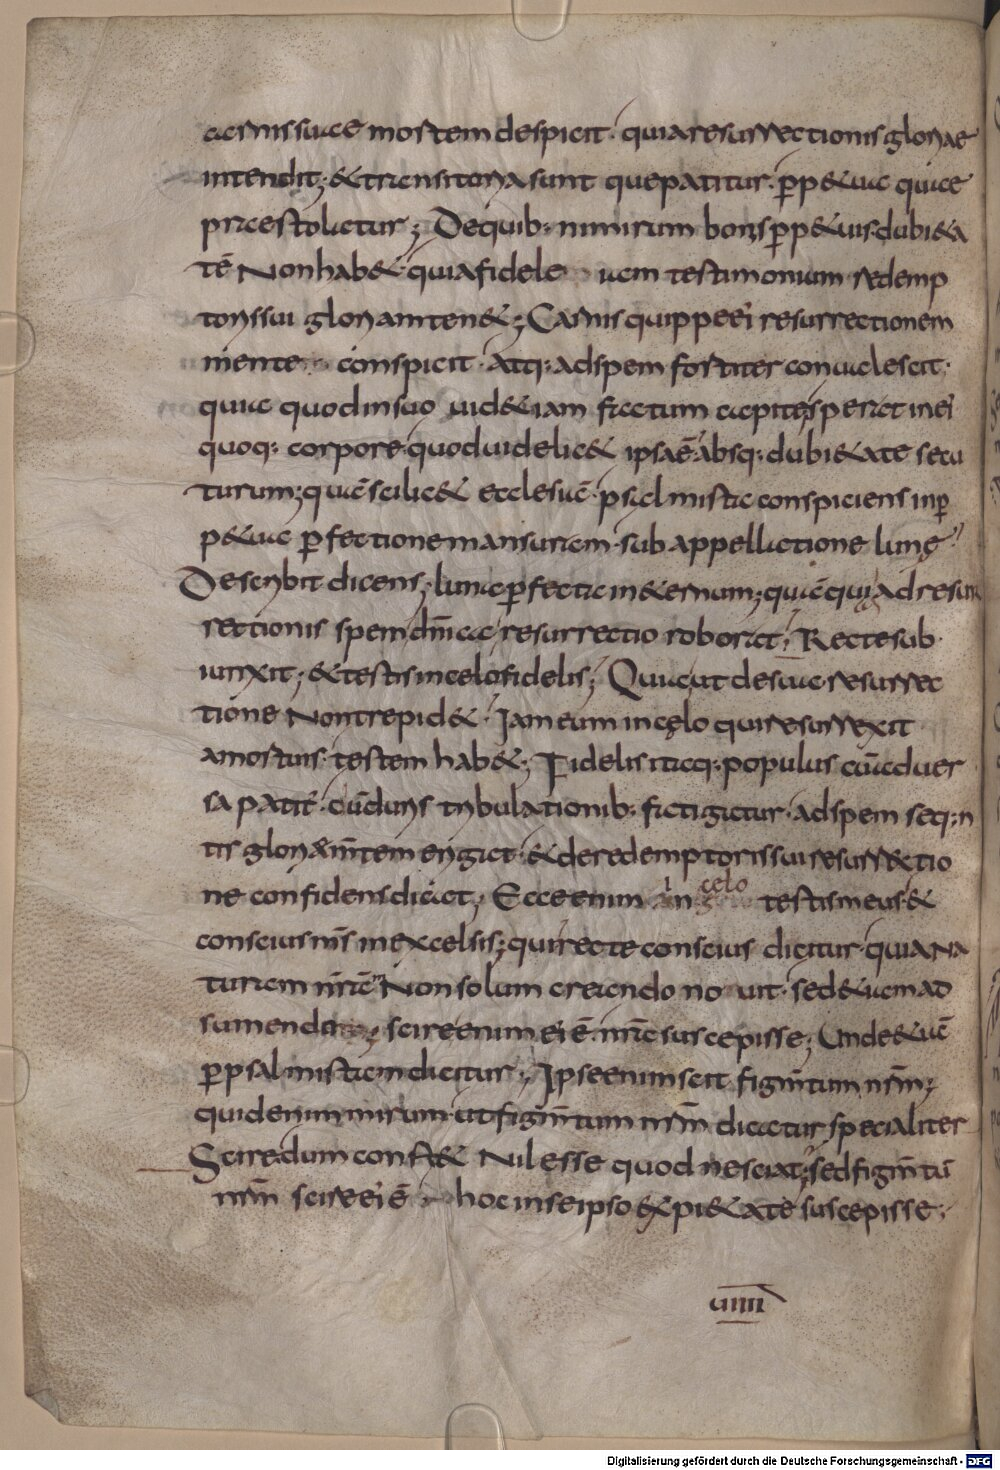 carnis suae mortem despicit · quia resurrectionis gloriae
intendit; & transitoria sunt que patitur · p̱p&ua quae
praestolatur; De quib: nimirum bonis p̱p&uis dubi&a
tē Non hab& · quia fidele uem testimonium redemp
toris sui gloriam ten&; Carnis quippe ei resurrectionem
mente conspicit · atq: ad spem fortiter conualescit ·
quia quod in suo uid& iam factum capite sperat in ei
quoq: corpore · quod uidelic& ipsa ē absq: dubi&ate secu
turum; quā scilic& ecclesiā · psalmista conspiciens in p̱
p&ua p̱fectione mansuram · sub appellatione lunę
Describit dicens; luna p̱fecta in &ernum; quā quia ad resur
rectionis spem dn̄ica resurrectio roborat; Recte sub
iunxit; & testis in celo fidelis; Quia ut de sua resurrec
tione Non trepid& · Iam eum in cęlo qui resurrexit
a mortuis · testem hab&; Fidelis itaq: populus cū aduer
sa patit̄ · cū duris tribulationib: fatigatur · ad spem seq:n
tis gloriā m̄tem erigat · & de redemptoris sui resurrectio
ne confidens dicat; Ecce enim in celo testis meus &
conscius m̄s in excelsis; qui recte conscius dicitur · quia Na
turam nr̄ā Non solum creando no uit · sed & iam ad
sumendo; scire enim ei ē · nr̄ā suscepisse; Unde & iā
p̱ psalmistam dicitur; Ipse enim scit figm̄tum nr̄m;
quid enim mirum ut figm̄tum nr̄m dicatur specialiter
Scire · dum const& Nil esse quod nesciat; sed figm̄tū
nr̄m scire ei ē hoc in se ipso &x pi&ate suscepisse;
uiiii
Digitalisierung gefördert durch die Deutsche Forschungsgemeinschaft - DFG